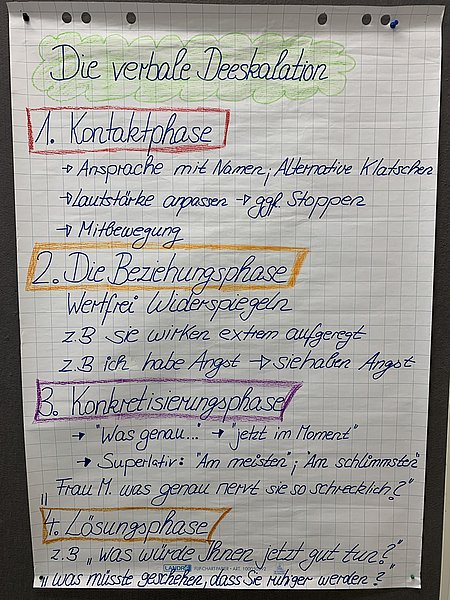 Die verbale Deeskalation
1. Kontaktphase
→ Ansprache mit Namen; Alternative Klatschen
→ Lautstärke anpassen → ggf. Stoppen
→ Mitbewegung
2. Die Beziehungsphase
Wertfrei Widerspiegeln
z.B sie wirken extrem aufgeregt
z.B ich habe Angst → sie haben Angst
3. Konkretisierungsphase
→ "Was genau..." → "jetzt im Moment"
→ Superlativ: "Am meisten"; "Am schlimmsten"
"Frau M. was genau nervt sie so schrecklich?"
4. Lösungsphase
z.B „Was würde Ihnen jetzt gut tun?"
LANDRÉ FLIPCHARTPAPIER • ART. 100
"was müsste geschehen, dass Sie ruhiger werden?"